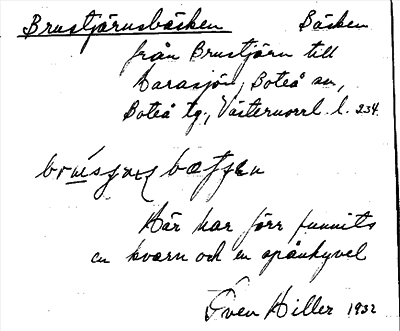 Brustjärnsbäcken Bäcken
från Brustjärn till
Harasjön, Boteå sn,
Boteå tg., Västernorrl. l. 234.
Här har förr funnits
en kvarn och en spånhyvel
Sven Hiller 1932